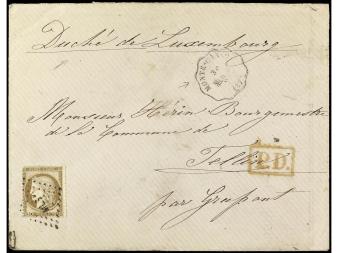 Duché de Luxembourg
Monsieur Hérin Bourgmestre
de la Commune de
Tellin
P.D.
par Grupont